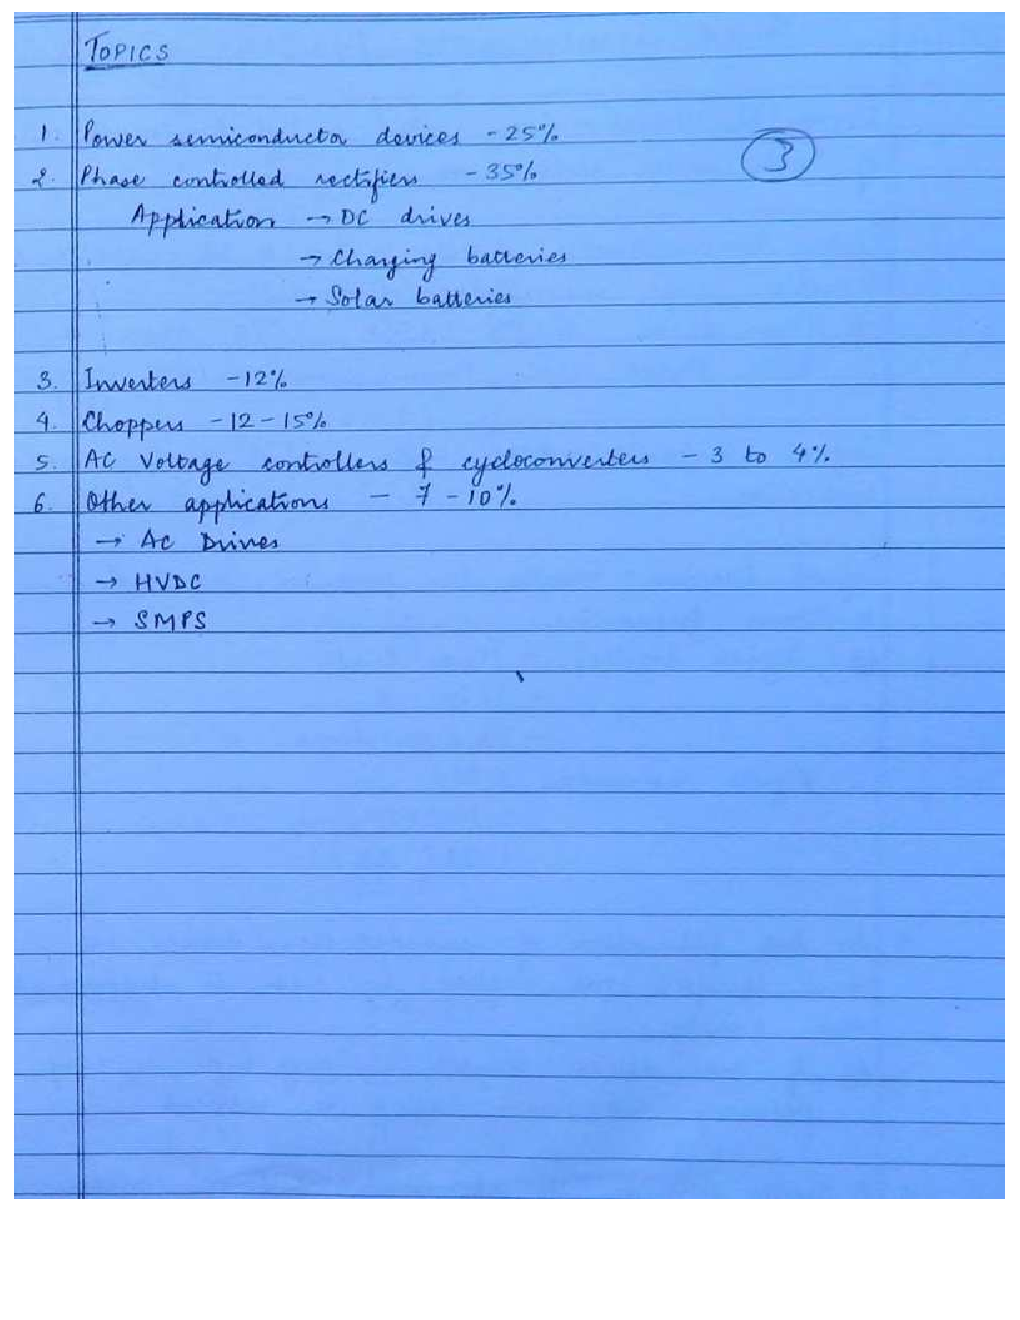 TOPICS
1. Power semiconductor devices - 25%
3
2. Phase controlled rectifiers - 35%
Application → DC drives
→ Charging batteries
→ Solar batteries
3. Inverters - 12%
4. Choppers - 12 - 15%
5. AC Voltage controllers & cycloconverters - 3 to 4%
6. Other applications - 7 - 10%
→ AC Drives
→ HVDC
→ SMPS